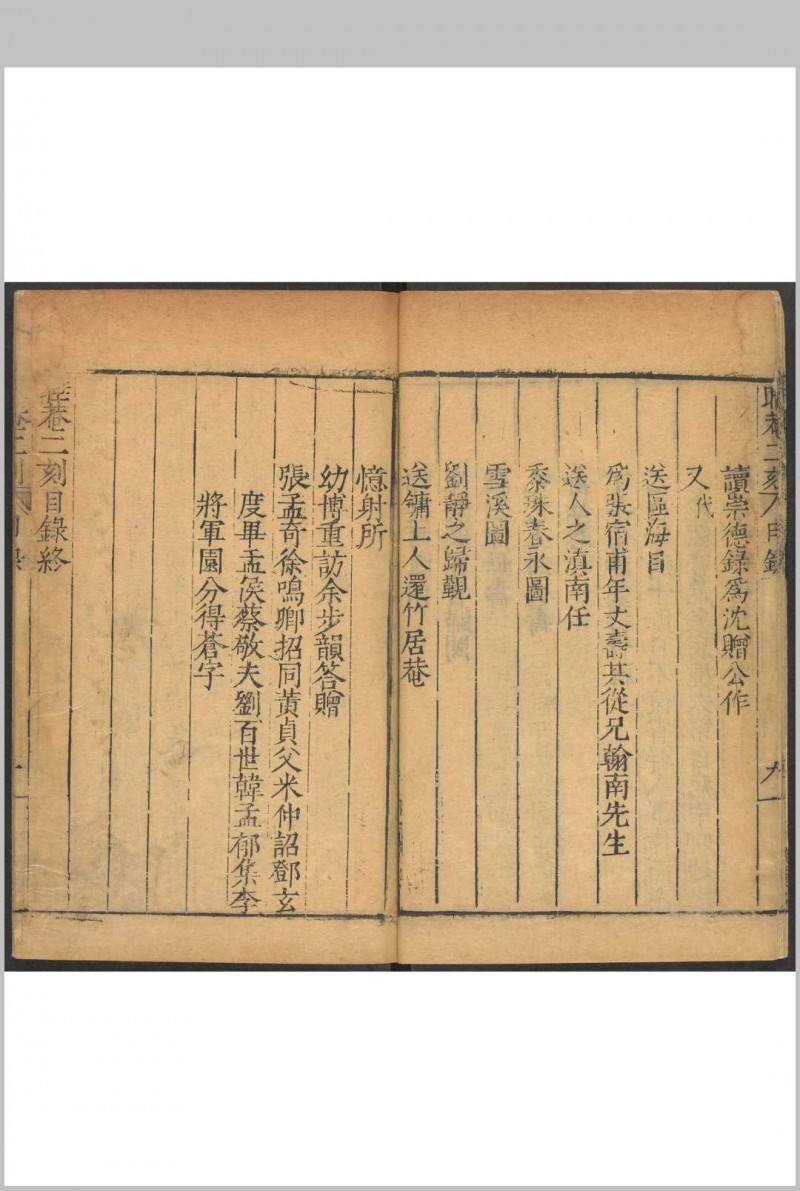 巷二刻 目錄
九
讀崇德錄爲沈贈公作
又代
送區海目
爲張宿甫年丈壽其從兄翰南先生
送人之滇南任
黍珠春永圖
雪溪圖
劉靜之歸覲
送鏞上人還竹居菴
憶射所
幼博重訪余步韻答贈
張孟奇徐鳴卿招同黃貞父米仲詔鄧玄
度畢孟侯蔡敬夫劉百世韓孟郁集李
將軍園分得蒼字
巷二刻目錄終